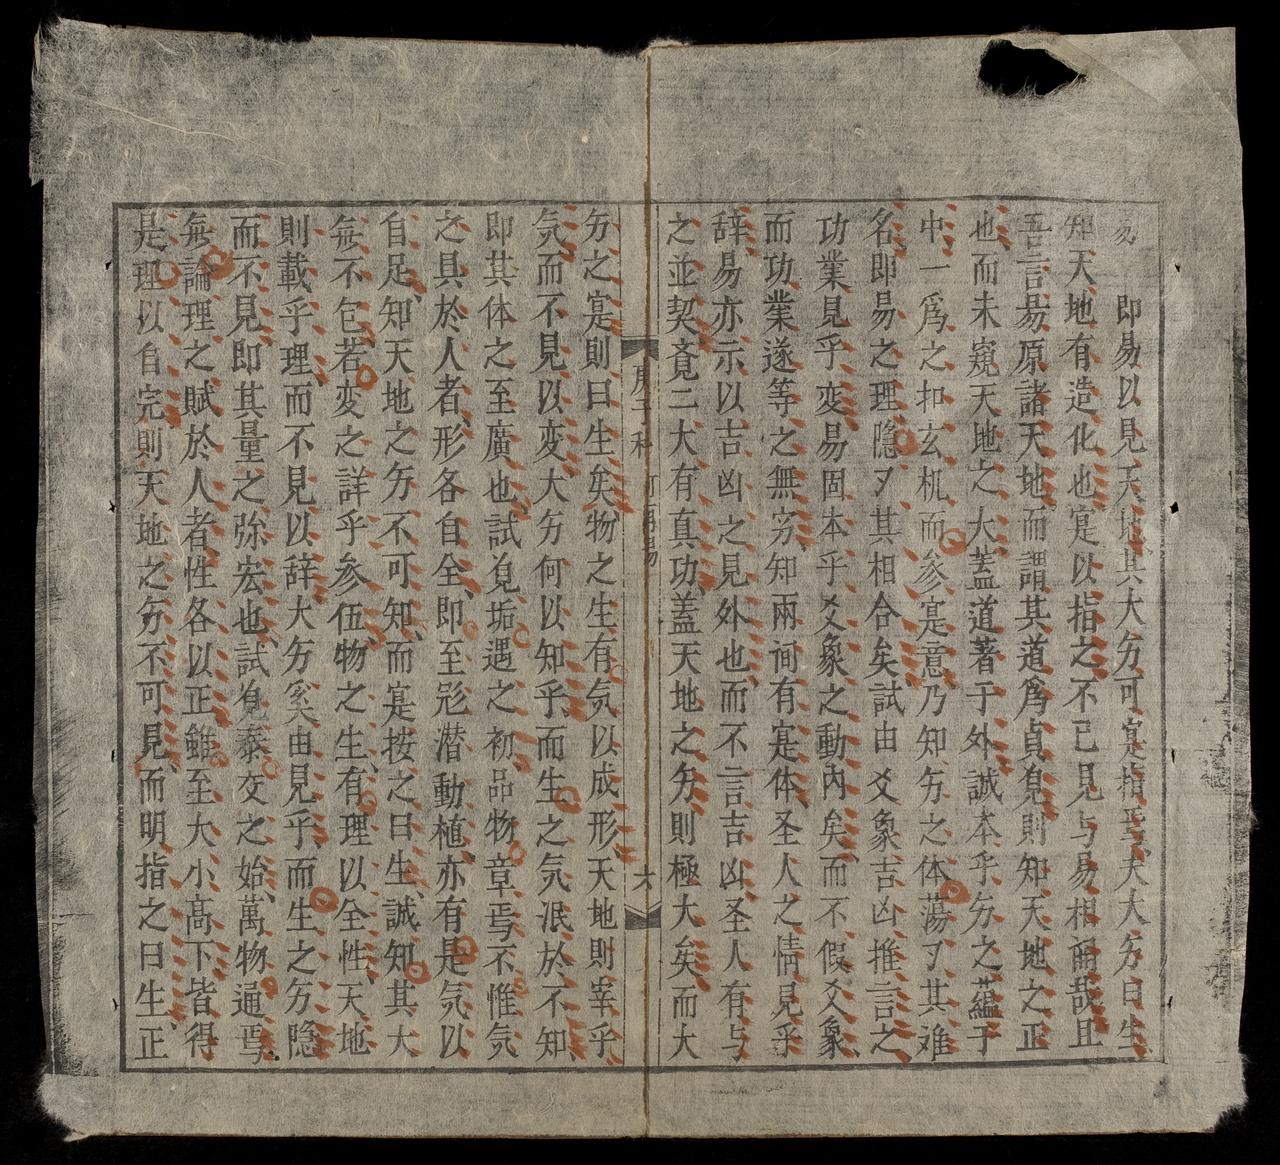 易
即易以見天地其大夯可寔指焉夫大夯曰生
知天地有造化也寔以指之不已見与易相甬哉且
吾言易原諸天地而謂其道為貞覓則知天地之正
也而未窺天地之大蓋道著于外誠本乎夯之蘊于
中一為之扣玄机而参寔意乃知夯之体蕩刄其难
名即易之理隐刄其相合矣試由爻象吉凶推言之
功業見乎変易固本乎爻象之動內矣而不假爻象
而功業遂等之無夯知兩间有寔体圣人之情見乎
辞易亦示以吉凶之見外也而不言吉凶圣人有与
之並契斉覓二大有真功蓋天地之夯則極大矣而大
夯之寔則曰生矣物之生有気以成形天地則宰乎
気而不見以変大夯何以知乎而生之気泯於不知
即其体之至廣也試覓垢遇之初品物章焉不惟気
之具於人者形各自全即至飛潜動植亦有是気以
自足知天地之夯不可知而寔按之曰生誠知其大
無不包若変之詳乎参伍物之生有理以全性天地
則載乎理而不見以辞大夯奚由見乎而生之夯隐
而不見即其量之弥宏也試覓泰交之始萬物通焉
無論理之賦於人者性各以正雖至大小高下皆得
是理以自完則天地之夯不可見而明指之曰生正
庚子科
六